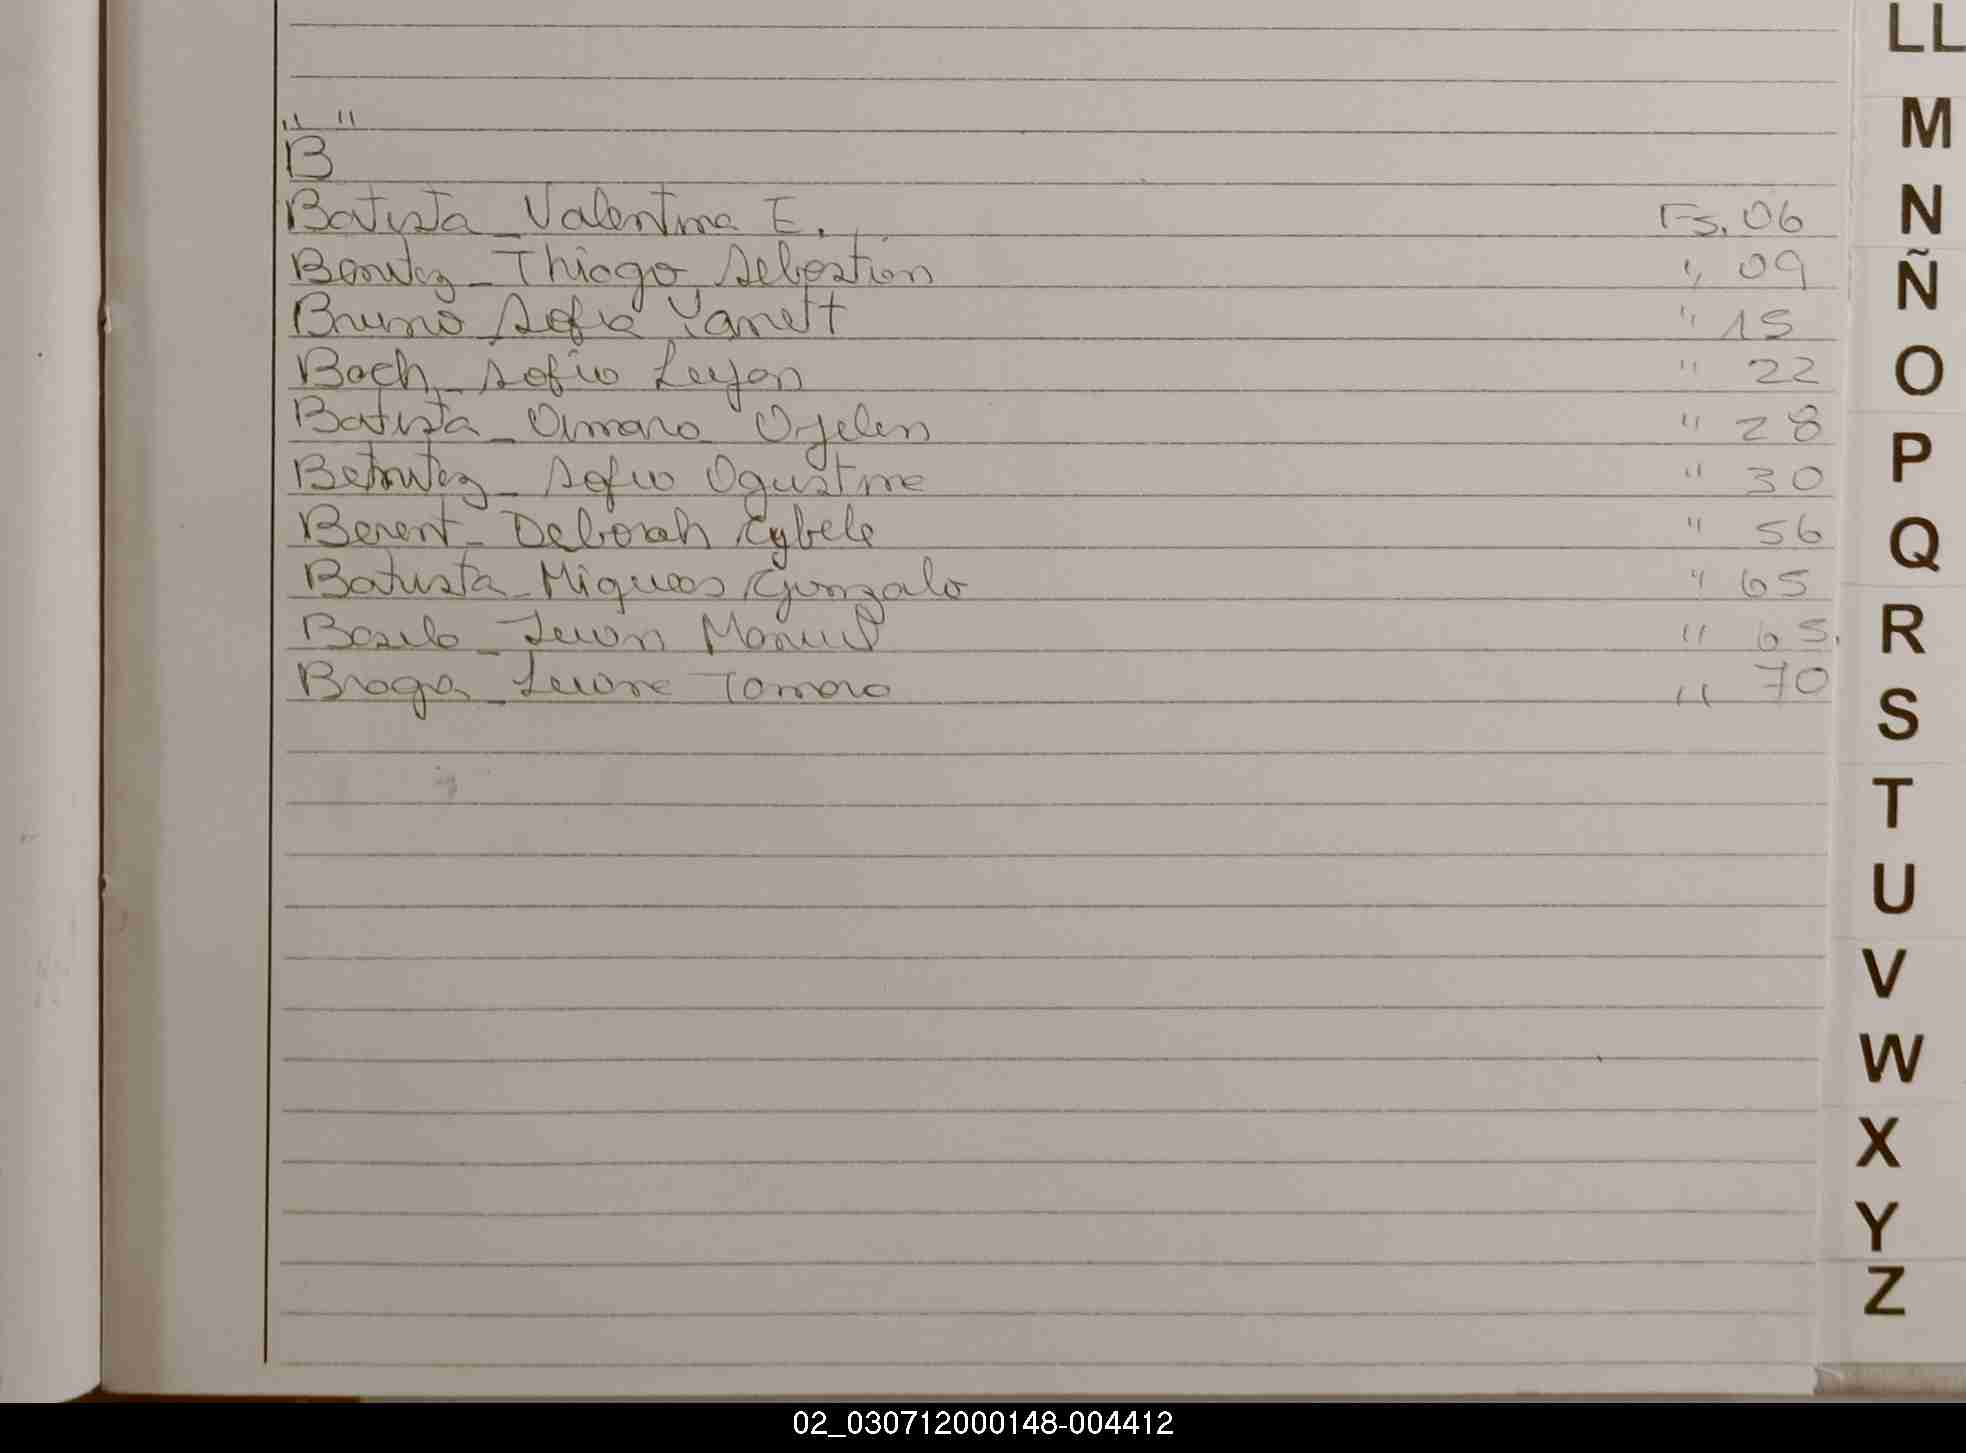 " "
B
Batista _ Valentina E. Fs. 06
Benitez _ Thiago Sebastian " 09
Bruno Sofia Yanett " 15
Bach _ Sofia Leyan " 22
Batista _ Amara Ayelen " 28
Benitez _ Sofia Agustina " 30
Berent _ Deborah Cybele " 56
Batista _ Miqueas Gonzalo " 65
Basilo _ Juan Manuel " 65.
Braga _ Luana Tamara " 70
LL
M
N
Ñ
O
P
Q
R
S
T
U
V
W
X
Y
Z
02_030712000148-004412